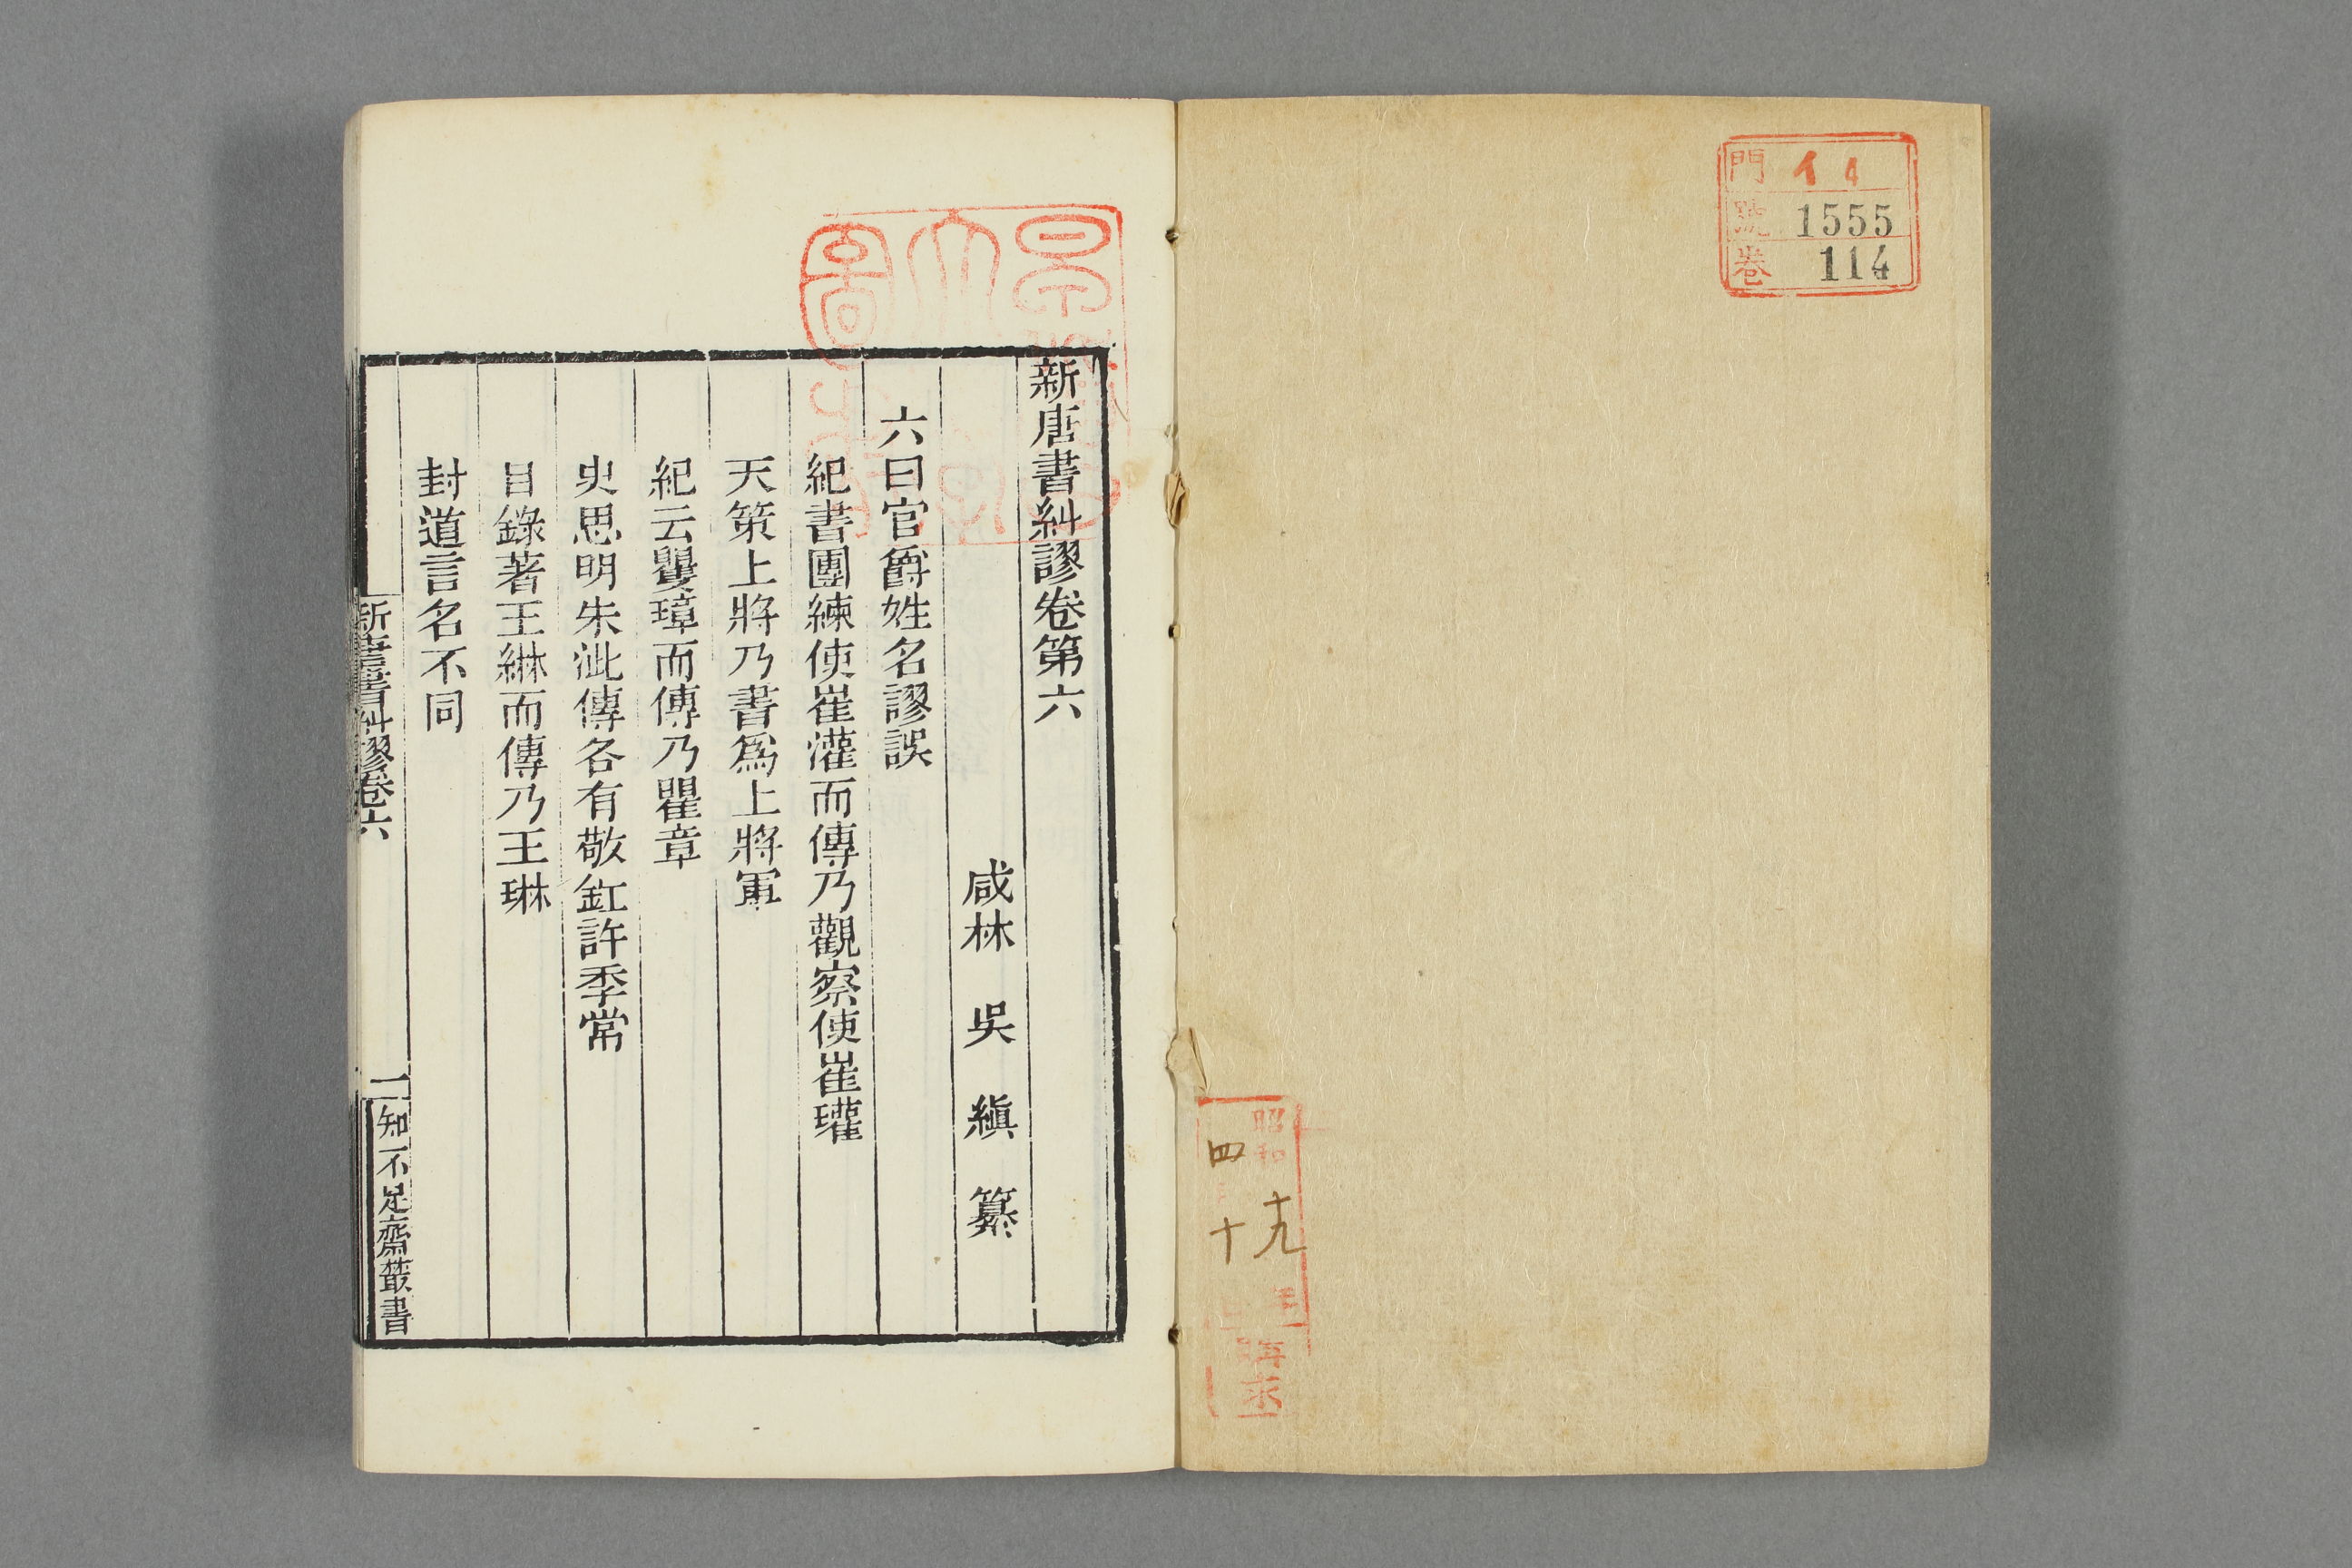 門 イ4
號 1555
卷 114
昭和
十九
年
四
十
購求
新唐書糾謬卷第六
咸林 吳 縝 纂
六曰官爵姓名謬誤
紀書團練使崔灌而傳乃觀察使崔瓘
天策上將乃書爲上將軍
紀云矍璋而傳乃瞿章
史思明朱泚傳各有敬釭許季常
目錄著王綝而傳乃王琳
封道言名不同
新唐書糾謬卷六
一
知不足齋叢書